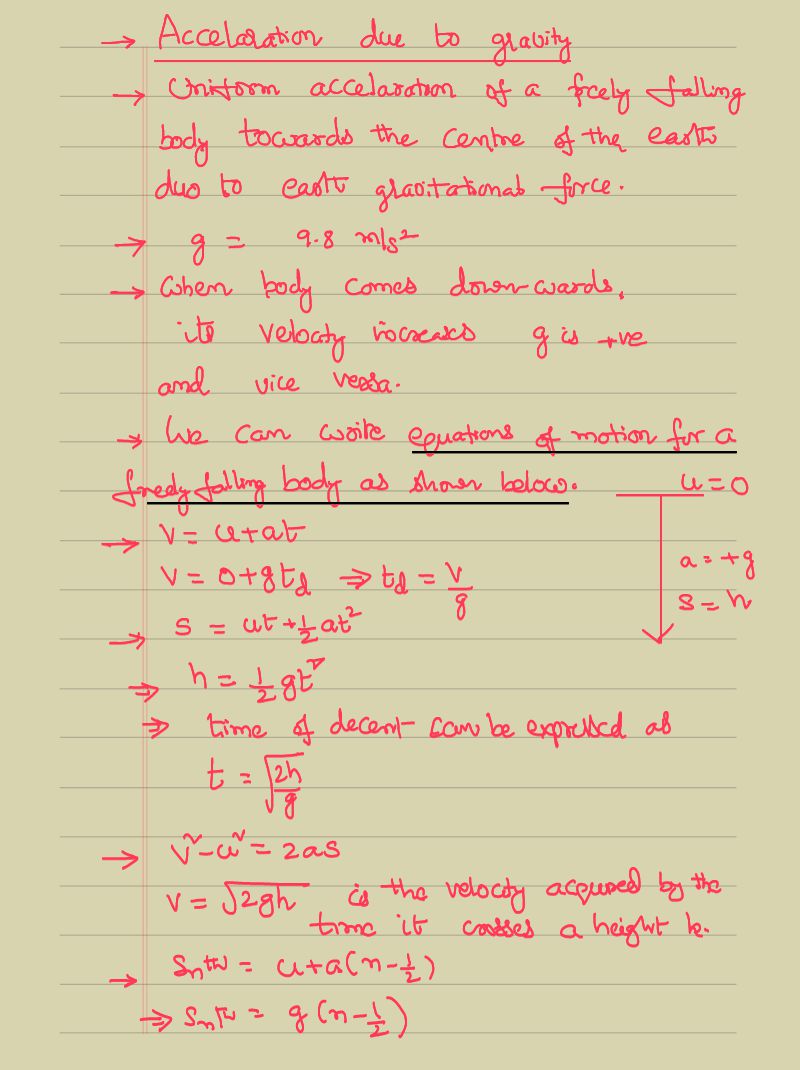 → Accelaration due to gravity
→ Uniform accelaration of a freely falling
body towards the centre of the earth
due to earth gravitational force.
→ g = 9.8 m/s²
→ When body comes down-wards,
its velocity increases g is +ve
and vice versa.
→ We can write equations of motion for a
freely falling body as shown below.
u = 0
→ V = u + at
a = +g
V = 0 + g t_d ⇒ t_d = V/g
S = h
→ S = ut + ½ at²
⇒ h = ½ gt²
⇒ time of decent can be expressed as
t = √(2h/g)
→ V² - u² = 2as
V = √2gh is the velocity acquired by the
time it crosses a height h.
→ Sₙth = u + a(n - ½)
⇒ Sₙth = g(n - ½)